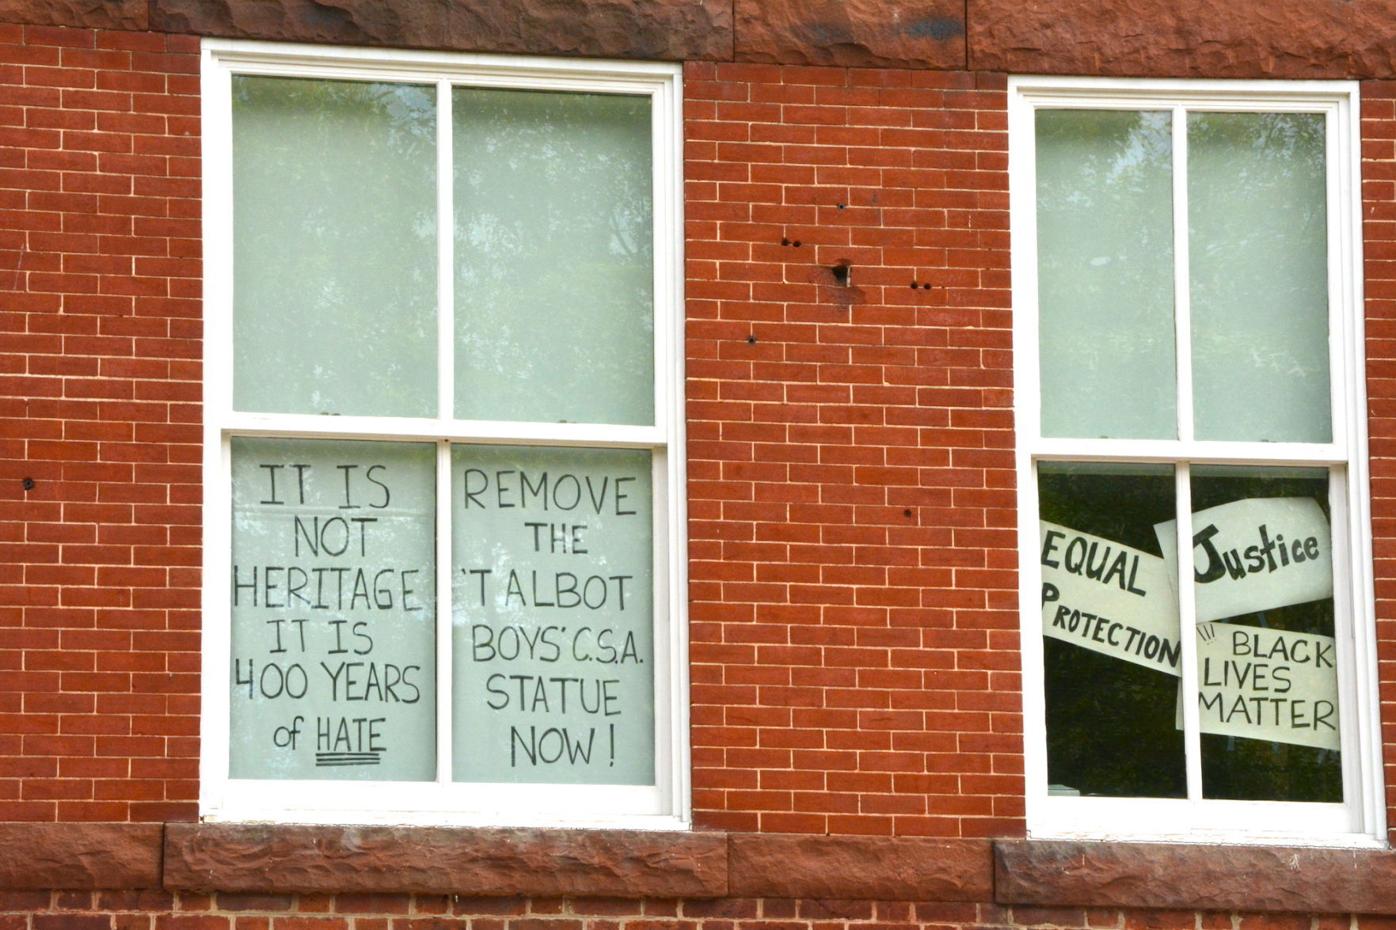 IT IS
NOT
HERITAGE
IT IS
400 YEARS
of HATE
REMOVE
THE
'TALBOT
BOYS' C.S.A.
STATUE
NOW!
EQUAL
PROTECTION
Justice
!!! BLACK
LIVES
MATTER